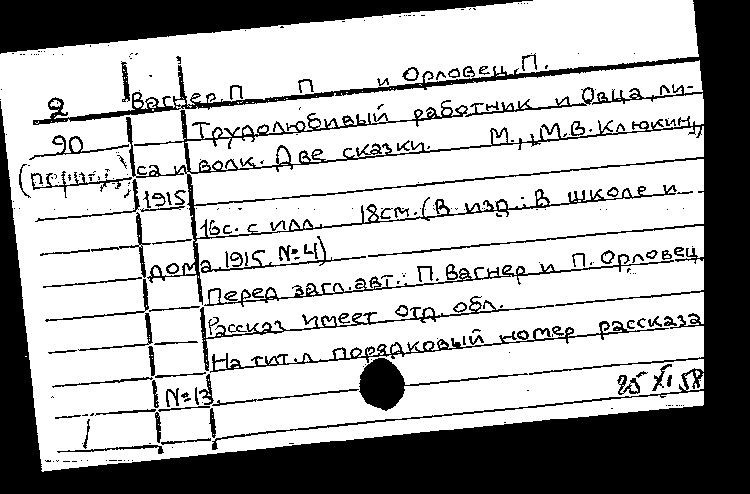 2 Вагнер, П П и Орловец, П.
90 Трудолюбивый работник и Овца, ли-
(период.) са и волк. Две сказки. М., "М.В. Клюкин",
1915
16с. с илл. 18см. (В изд.: В школе и
дома. 1915. №4)
Перед загл. авт.: П. Вагнер и П. Орловец.
Рассказ имеет отд. обл.
На тит. л порядковый номер рассказа
№13.
25 XI 58